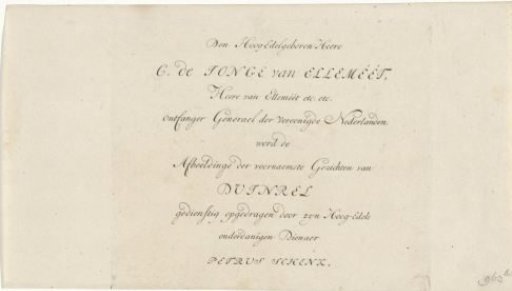 Den Hoog-Edelgeboren Heere
C. de JONGE van ELLEMÉÉT,
Heere van Elleméét etc. etc.
Ontfanger Generael der Vereenigde Nederlanden
werd de
Afbeeldinge der voornaemste Gesichten van
DUINREL
gedienstig opgedragen door zyn Hoog-Edels
onderdanigen Dienaer
PETRUS SCHENK.